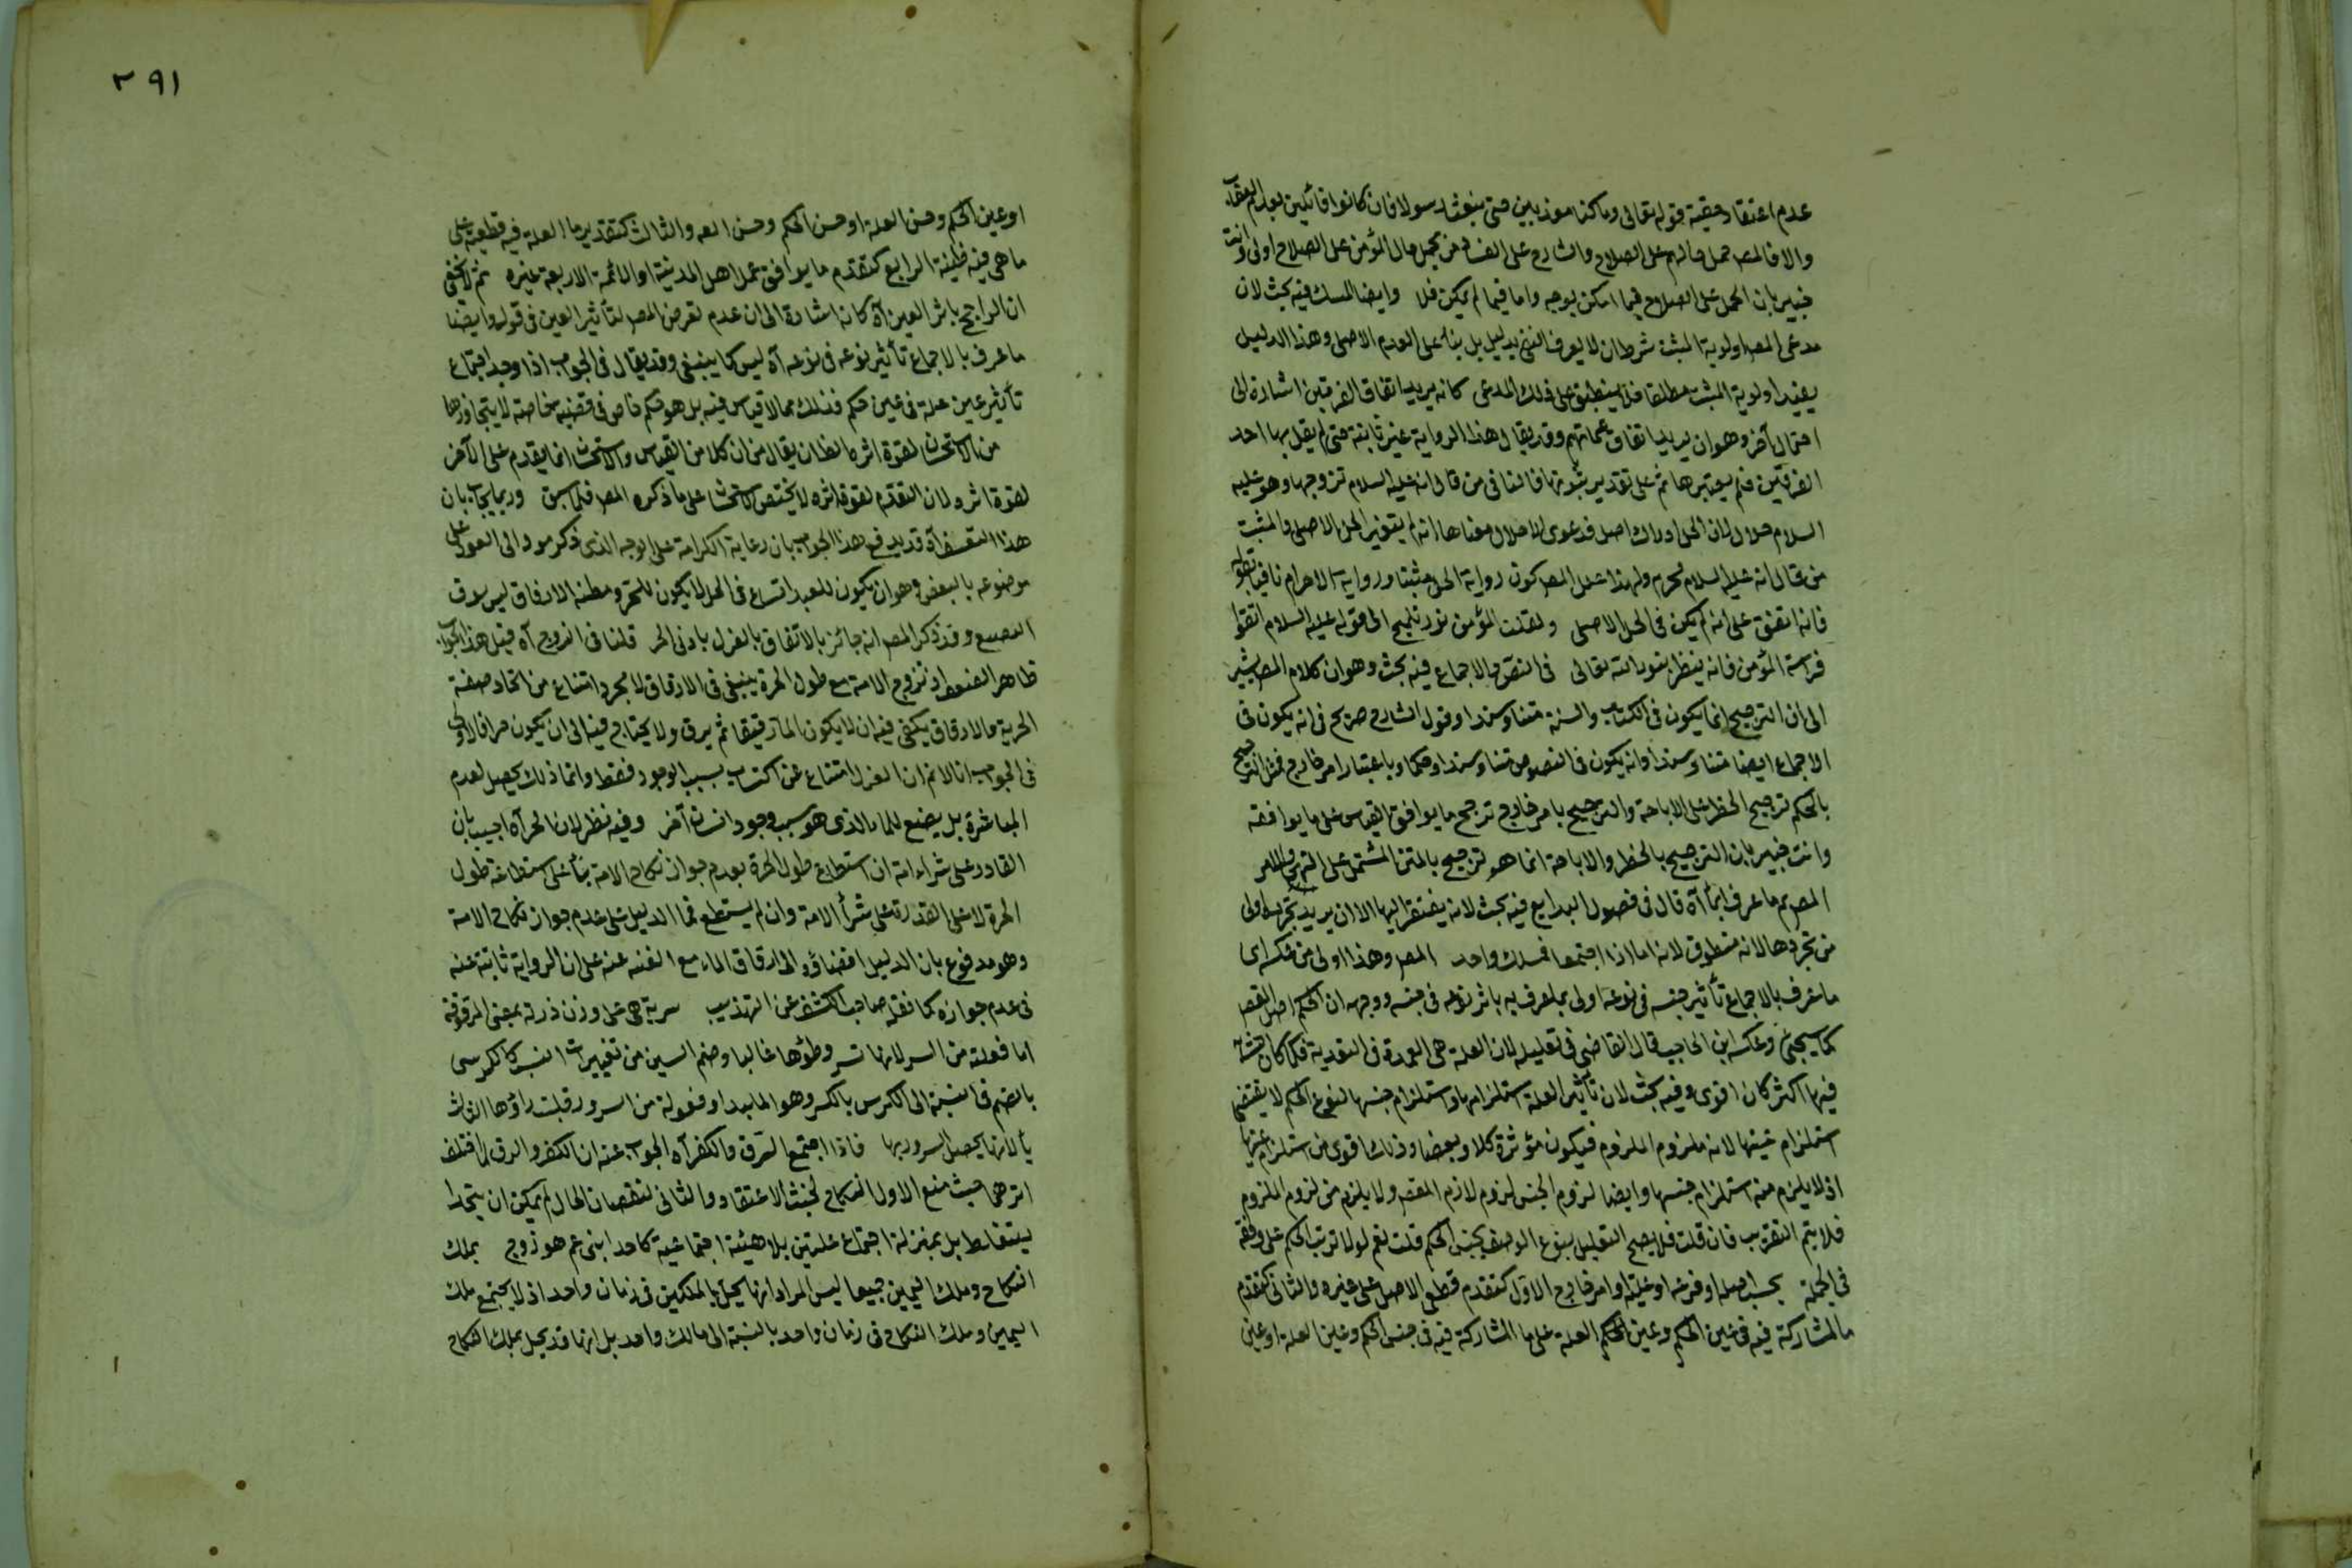 عدم اعتقاد حقية قوله تعالى وما كنا معذبين حتى نبعث رسولا فان كانوا قائلين بعدم العقاب
والا فالمصر حمل حالهم على الصلاح والشارح على الفساد فمن يحمل حال المؤمن على الصلاح اولى وانت
خبير بان الحمل على الصلاح فيما امكن بوجه واما فيما لم يمكن فلا وايضا المسك فيه بحث لان
مدعى المصر اولوية المثبت شرطان لا يعرف النفى بدليل بل بناء على العدم الاصلى وهذا الدليل
يفيد اولوية المثبت مطلقا فلا ينطبق على ذلك المدعى كانه يريد اتفاق الفريقين اشارة الى
احتمال آخر وهو ان يريد اتفاق عامتهم وقد يقال هذا الرواية غير ثابتة حتى لم يقل بها احد
الفريقين فلم يعتبرها ثم على تقدير ثبوتها فالنافى من قال انه عليه السلام تزوجها وهو عليه
السلام حلال لان الحل اصل فدعوى الاحلال معناها انه لم يتغير الحل الاصلى والمثبت
من قال انه عليه السلام محرم ولهذا علل المصر كون رواية الحل مثبتا ورواية الاحرام نافيا بقوله
فانه اتفق على انه لم يكن فى الحل الاصلى ولقلت المؤمن نور تلميح الى قوله عليه السلام اتقوا
فراسة المؤمن فانه ينظر بنور الله تعالى فى النص والاجماع فيه بحث وهو ان كلام المصر يشير
الى ان الترجيح انما يكون فى الكتاب والسنة متنا وسندا وقول الشارح صريح فى انه يكون فى
الاجماع ايضا متنا وسندا وانه يكون فى النصوص متنا وسندا وحكما وباعتبار امر خارج فمثل الترجيح
بالحكم ترجيح الحظر على الاباحة والترجيح بامر خارج ترجح ما يوافق القياس على ما يوافقه
وانت خبير بان الترجيح بالحظر والاباحة انما هو ترجيح بالمتن المشتمل على النهى والامر
المصر ما عرف ايماً آه قال فى فصول البدايع فيه بحث لانه يفتقر اليها الا ان يريد تجردها اولى
من تجردها لانه منطوق لانه اما اذا اجتمعا فمسلك واحد المصر وهذا اولى من عكسه اى
ما عرف بالاجماع تأثير جنسه فى نوعه اولى مما عرف به باثر نوعه فى جنسه ووجهه ان الحكم اصل المقصر
كما سيجئ وعكسه ابن الحاجب قال القاضى فى تعليله لان العلة هى العمدة فى التعدية فكلما كان التشابه
فيها اكثر كان اقوى وفيه بحث لان تأثير العلة استلزامها واستلزام جنسها لنوع الحكم لا يقتضى
استلزام عينها لانه ملزوم الملزوم فيكون مؤثرة كلا وبعضا وذلك اقوى من استلزام عينها
اذ لا يلزم منه استلزام جنسها وايضا لزوم الجنس لزوم لازم المقصر ولا يلزم من لزوم الملزوم
فلا يتم التقريب فان قلت فلا يصح التعليل بنوع الوصف بجنس الحكم قلت نعم لولا ترتب الحكم على وفقه
فى الجملة بحسب اصله او فرعه او علته او امر خارج الاول كتقدم قطعى الاصل على غيره والثانى كتقدم
ما المشاركة فيه فى عين الحكم وعين العلة على ما المشاركة فيه فى جنس الحكم وعين العلة او عين
٢٩١
او عين الحكم وجنس العلة او جنس الحكم وجنس العلة والثالث كتقديم ما العلة فيه قطعية على
ما هى فيه ظنية الرابع كتقدم ما يوافق عمل اهل المدينة او الائمة الاربعة غيره ثم لا يخفى
ان الراجح باثر العين آه كانه اشارة الى ان عدم تعرض المصر لتأثير العين فى قوله وايضا
ما عرف بالاجماع تأثير نوعه فى نوعه آه ليس كما ينبغى وقد يقال فى الجواب اذا وجد اجتماع
تأثير عين علة فى عين حكم فذلك مما لا قياس فيه بل هو حكم خاص فى قضيه خاصة لا يتجاوزها
من الاستحسان لقوة اثره الظان يقال من ان كلا من القياس والاستحسان انما يقدم على الآخر
لقوة اثره لان التقدم لقوة اثره لا يختص بالاستحسان على ما ذكره المصر فيما سبق وربما يجاب بان
هذا التعسف آه قد يدفع هذا الجواب بان رعاية الكرامة على الوجه الذى ذكر مود الى العود على
موضوعه بالبعض وهو ان يكون للعبد اتساع فى الحل لا يكون للحر ومظنة الارقاق ليس فوق
التضييع وقد ذكر المصر انه جائز بالاتفاق بالعزل باذن الحر قلنا فى التزوج آه قيل هذا الجواب
ظاهر الضعف اذ تزوج الامة مع طول الحرة ينبغى فى الارقاق لا مجرد امتناع من اتحاد صفة
الحرية والارقاق يكفى فيه ان لا يكون الماء رقيقا ثم يرق ولا يحتاج فيه الى ان يكون حرا فالاولى
فى الجواب انا لا نم ان العزل امتناع عن اكتساب سبب الوجود فقط وانما ذلك يحصل لعدم
المباشرة بل يضيع للماء الذى هو سبب وجود انسان آخر وفيه نظر لان الحر آه اجيب بان
القادر على شراء امة ان استطاع طول الحرة بعدم جواز نكاح الامة بناء على استطاعة طول
الحرة لا على القدرة على شراء الامة وان لم يستطع فما الدليل على عدم جواز نكاح الامة
وهو مدفوع بان الدليل افضاؤه الى ارقاق الماء مع الغنه عنه على ان الرواية ثابتة عنه
فى عدم جوازه كما نقله صاحب الكشف عن التهذيب سرية هى على وزن ذرية بمعنى المرقوقة
اما فعلة من السر لانها تسر وطؤها غالبا وضم السين من تغييرات النسب كالكرسى
بالضم فى النسبة الى الكرس بالكسر وهو الملبد او فعولة من السرور قلبت راؤها الثالث
يأ لانها يحصل السرور بها فاذا اجتمع الرق والكفر آه الجواب عنه ان الكفر والرق لما اختلف
اثرهما حيث منع الاول النكاح لخبث الاعتقاد والثانى لنقصان الحال لم يمكن ان يتحدا
يستغا بل بمنزلة اجتماع علتين بلا هيئة اجتماعية كاحد ابنى عم هو زوج بملك
النكاح وملك اليمين جميعا ليس المراد انها يحل بالملكين فى زمان واحد اذ لا يجتمع ملك
اليمين وملك النكاح فى زمان واحد بالنسبة الى مالك واحد بل انها قد يحل بملك النكاح